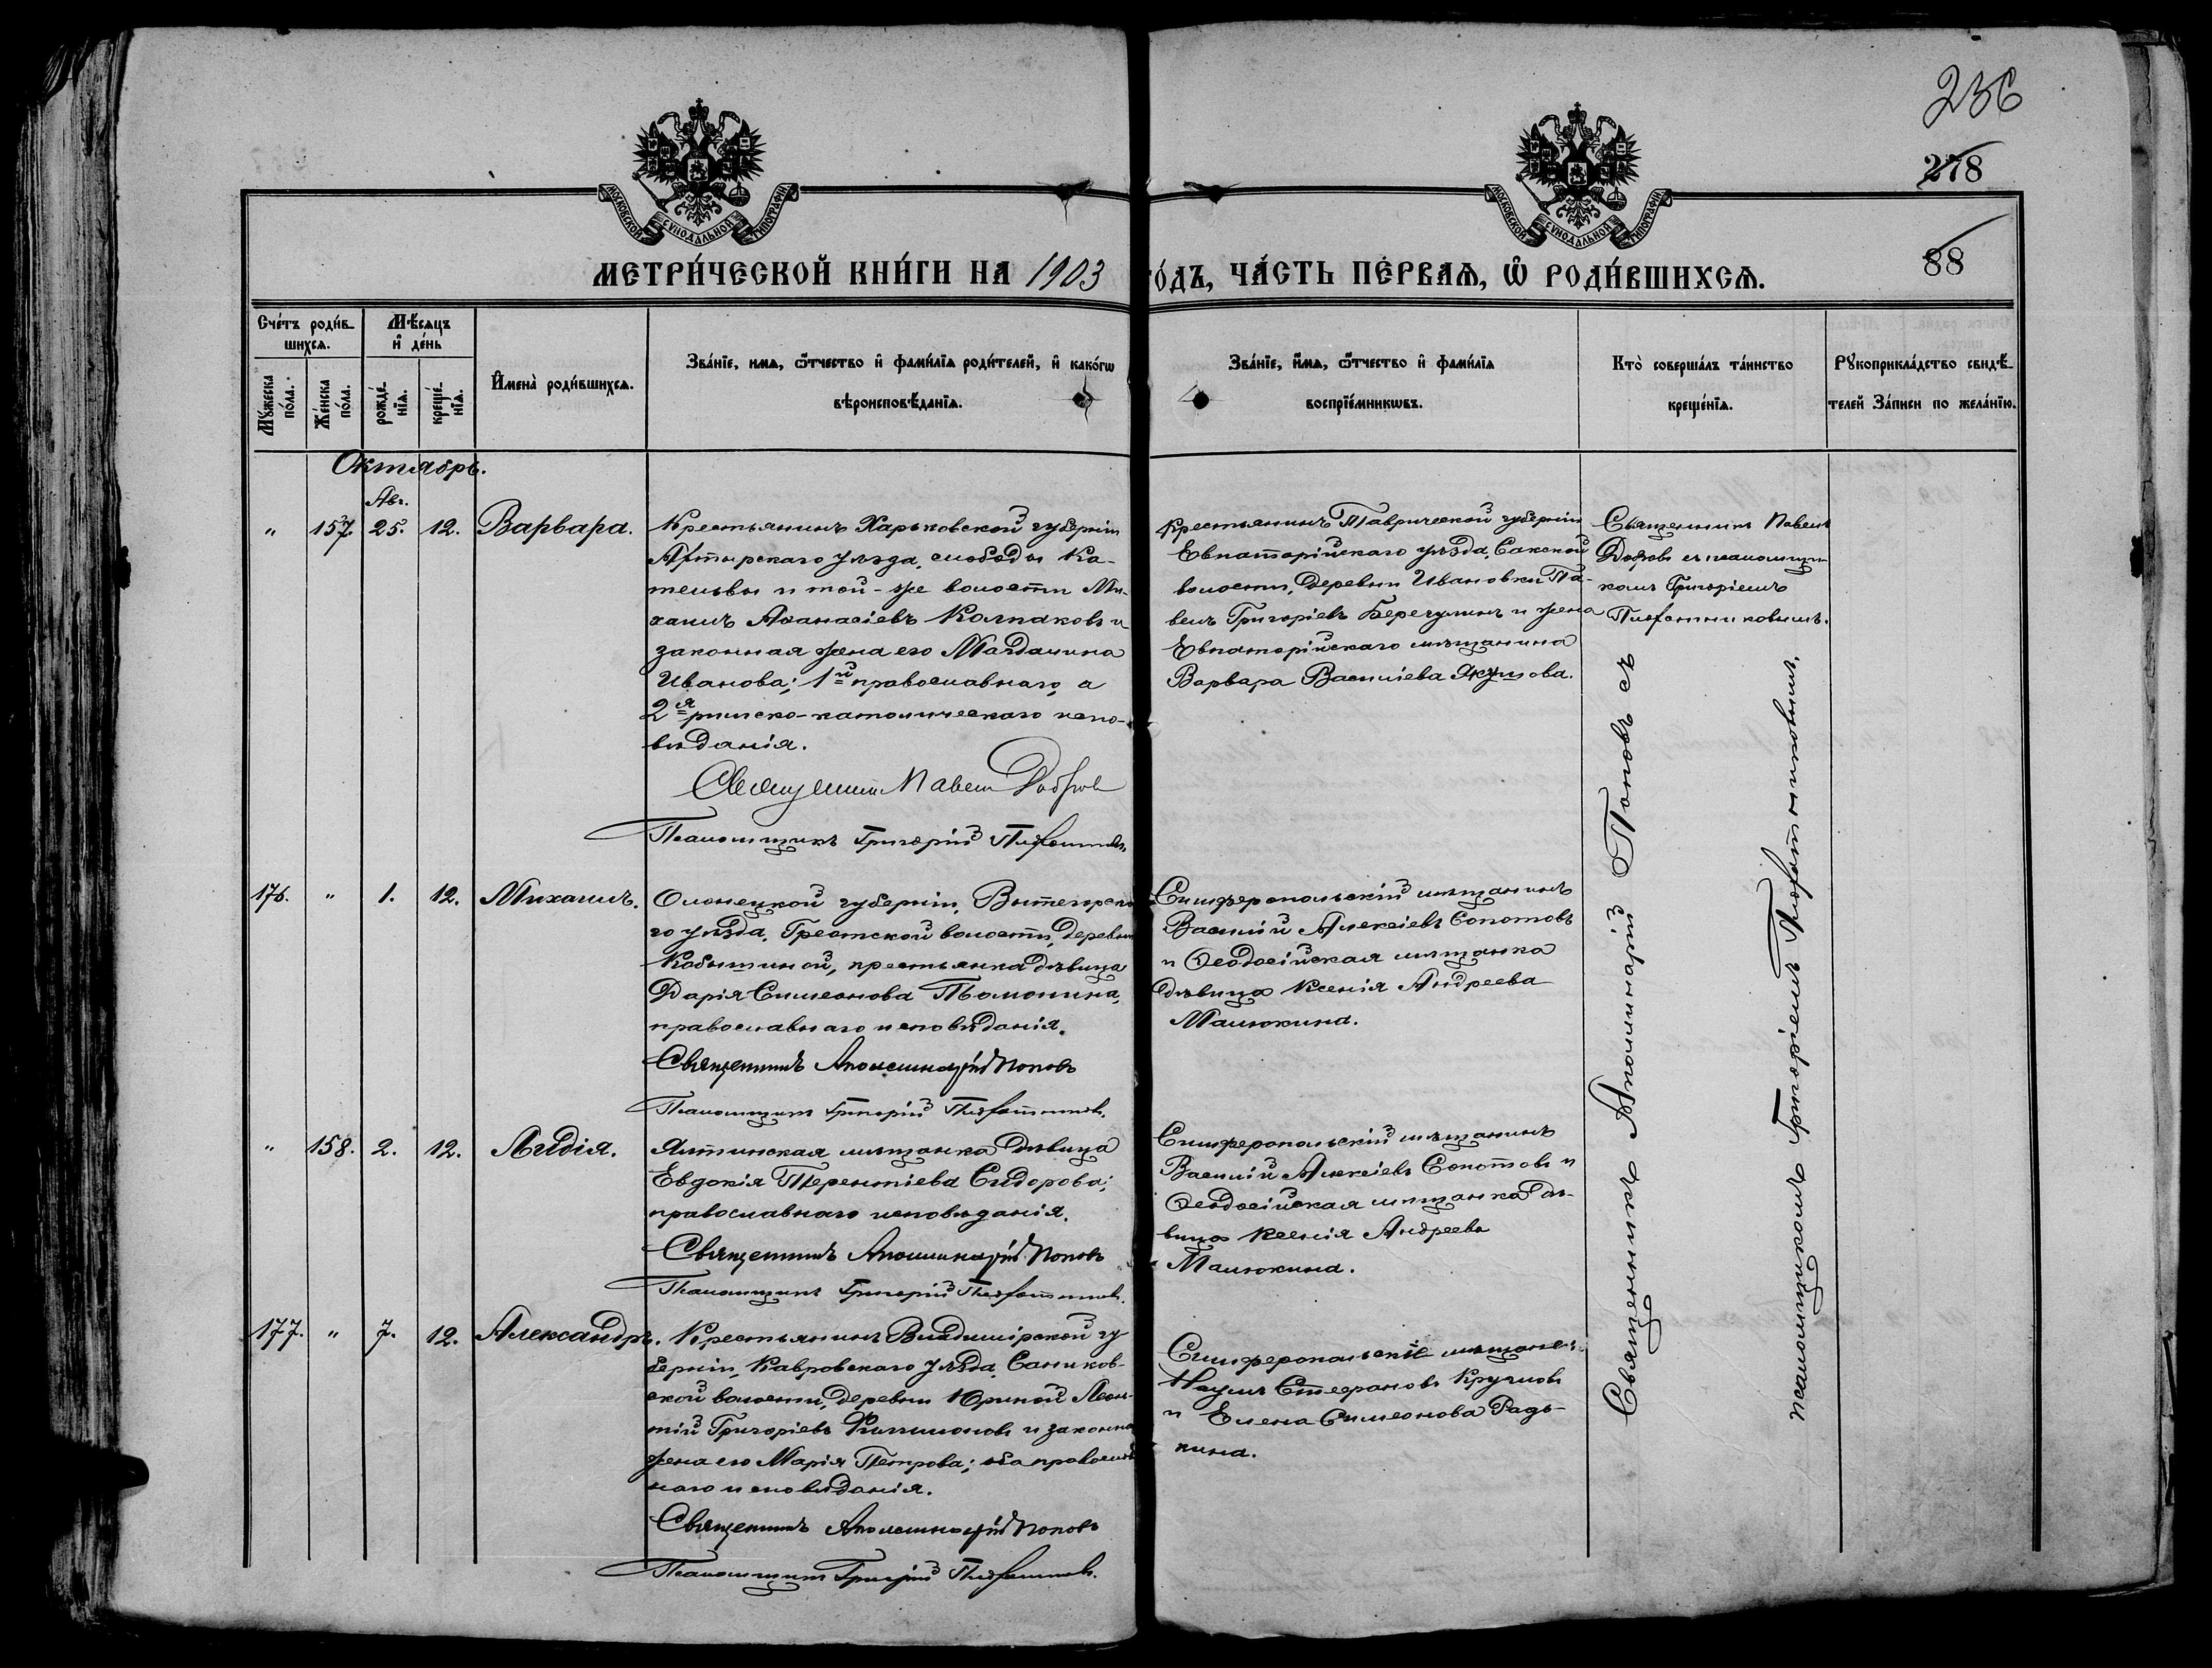 236
278
88
МОСКОВСКОЙ СѴНОДАЛЬНОЙ ТИПОГРАФІИ
МОСКОВСКОЙ СѴНОДАЛЬНОЙ ТИПОГРАФІИ
МЕТРИ́ЧЕСКОЙ КНИ́ГИ НА 1903 ГО́ДЪ, ЧА́СТЬ ПЕ́РВАѦ, Ѿ РОДИ́ВШИХСѦ.
Сче́тъ роди́в-
шихсѧ.
Мѣ́сѧцъ
и҆ де́нь
Мꙋжеска
по́ла.
Же́нска
по́ла.
рожде́-
нїѧ.
креще́-
нїѧ.
И҆мена̀ роди́вшихсѧ.
Зва́нїе, имѧ, ѻ҆́тчество и҆ фами́лїѧ роди́телей, и҆ како́гѡ
вѣроисповѣ́данїѧ.
Зва́нїе, и҆́мѧ, ѻ҆́тчество и҆ фами́лїѧ
воспрїе́мникѡвъ.
Кто̀ соверша́лъ та́инство
креще́нїѧ.
Рꙋкоприкла́дство свидѣ́-
телей За́писи по жела́нїю.
Октябрь.
Авг.
" 157. 25. 12. Варвара.
Крестьянинъ Харьковской губерніи
Ахтырскаго уѣзда, слободы Ко-
тельвы и той-же волости Ми-
хаилъ Аѳанасіевъ Колпаковъ и
законная жена его Магдалина
Иванова; 1й православнаго, а
2я римско-католическаго испо-
вѣданія.
Священникъ Павелъ Добровъ
Псаломщикъ Григорій
Крестьянинъ Таврической губерніи
Евпаторійскаго уѣзда, Сакской
волости, деревни Ивановки Па-
велъ Григорьевъ и жена
Евпаторійскаго мѣщанина
Варвара Василіева Якушова.
Священникъ Павелъ
Добровъ съ псаломщи-
комъ Григоріемъ
176. " 1. 12. Михаилъ.
Олонецкой губерніи, Вытегорска-
го уѣзда, волости, деревни
крестьянка дѣвица
Дарія Симеонова
православнаго исповѣданія.
Священникъ Аполлинарій Поповъ
Псаломщикъ Григорій
Симферопольскій мѣщанинъ
Василій Алексіевъ Сопотовъ
и Ѳеодосійская мѣщанка
дѣвица Ксенія Андреева
Малюкина.
" 158. 2. 12. Лидія.
Ялтинская мѣщанка дѣвица
Евдокія Терентіева Сидорова;
православнаго исповѣданія.
Священникъ Аполлинарій Поповъ
Псаломщикъ Григорій
Симферопольскій мѣщанинъ
Василій Алексіевъ Сопотовъ и
Ѳеодосійская мѣщанка дѣ-
вица Ксенія Андреева
Малюкина.
177. " 7. 12. Александръ.
Крестьянинъ Владимірской гу-
берніи, Ковровскаго уѣзда, Санников-
ской волости, деревни Юриной Леон-
тій Григоріевъ Филимоновъ и законная
жена его Марія Петрова; оба православ-
наго исповѣданія.
Священникъ Аполлинарій Поповъ
Псаломщикъ Григорій
Симферопольскіе мѣщане:
Наумъ Стефановъ Кручковъ
и Елена Симеонова Радь-
кина.
Священникъ Аполлинарій Поповъ съ
псаломщикомъ Григоріемъ